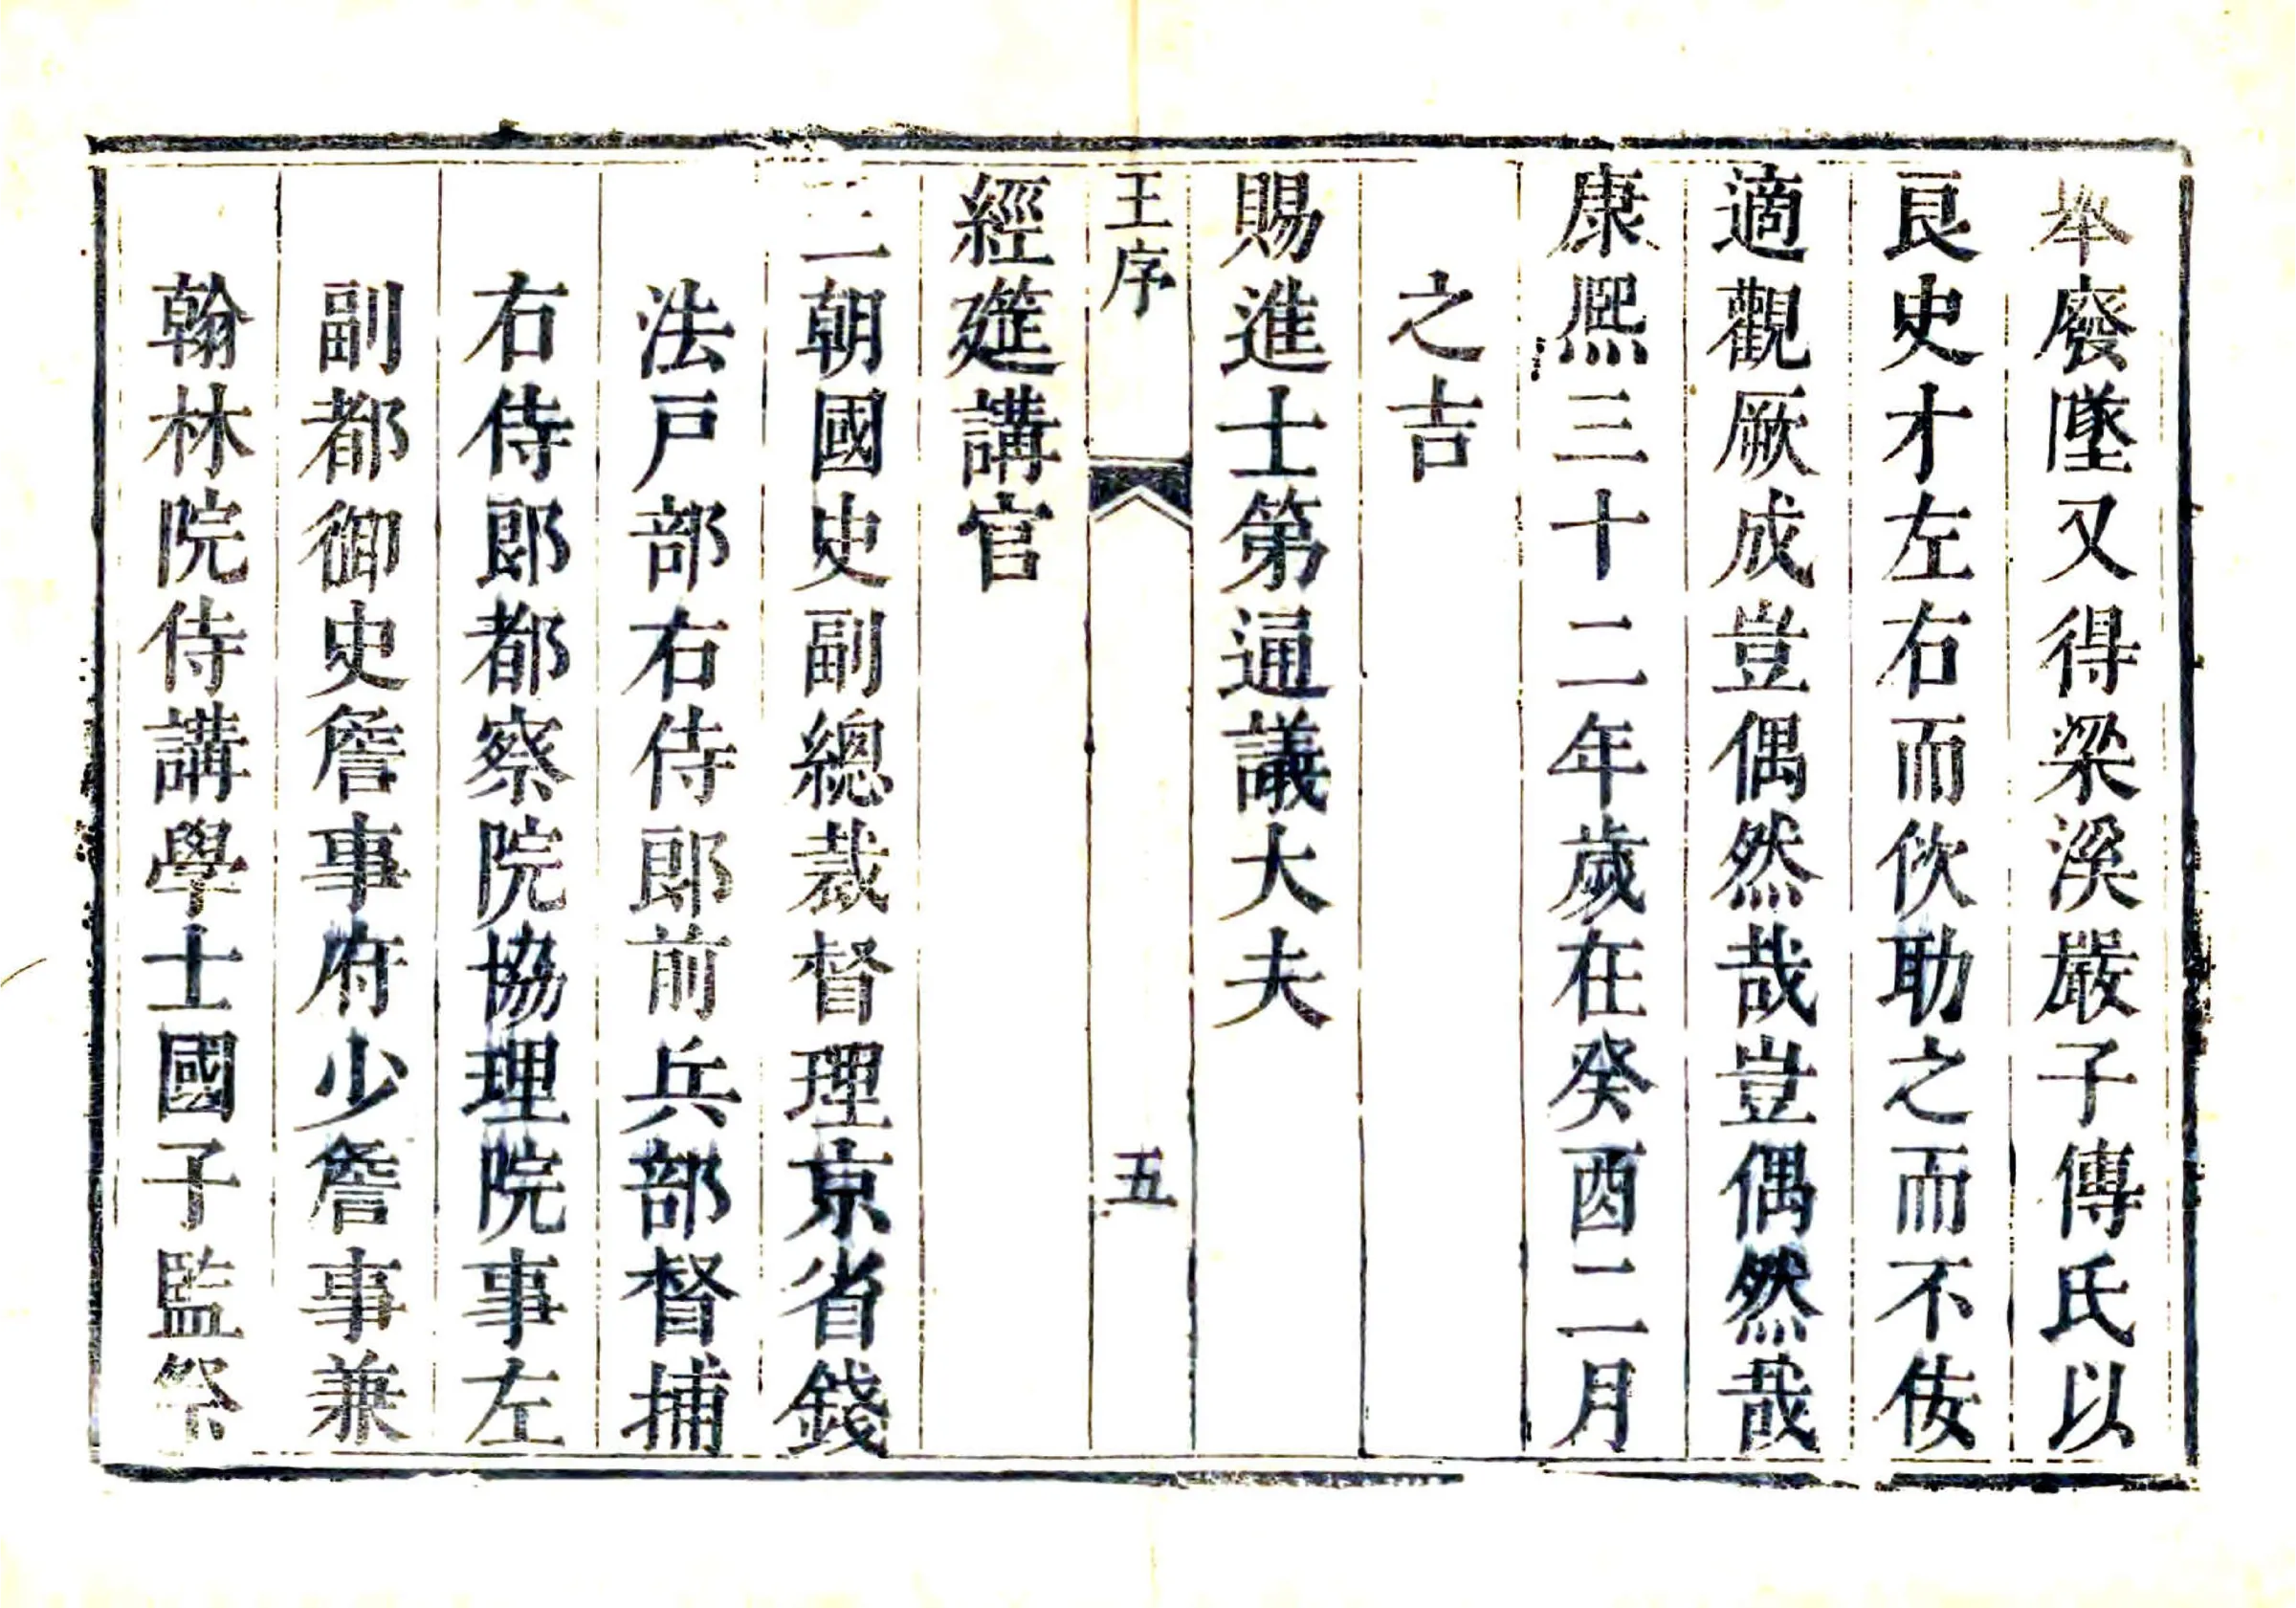 舉廢墜又得梁溪嚴子傳氏以
良史才左右而佽助之而不佞
適觀厥成豈偶然哉豈偶然哉
康熙三十二年歲在癸酉二月
之吉
賜進士第通議大夫
王序 五
經筵講官
三朝國史副總裁督理京省錢
法戸部右侍郎前兵部督捕
右侍郎都察院協理院事左
副都御史詹事府少詹事兼
翰林院侍講學士國子監祭